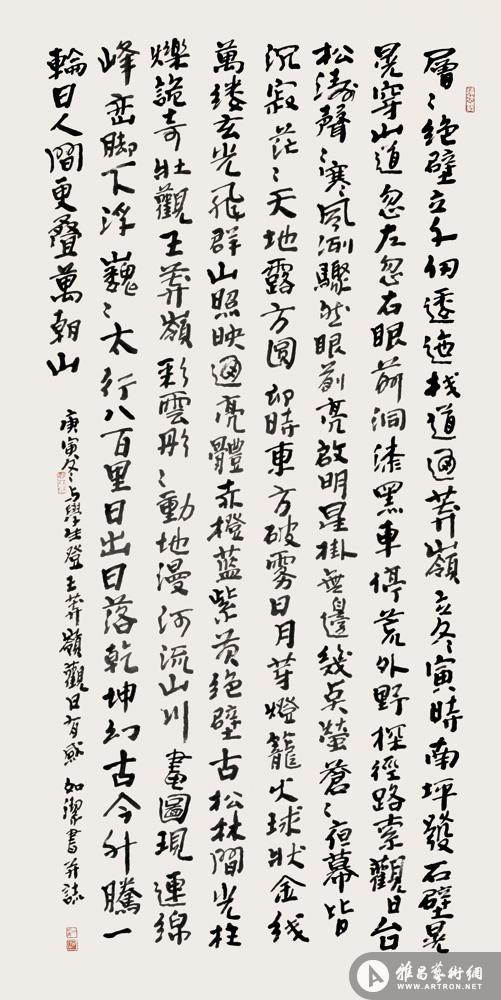 層〻絕壁立千仞逶迤棧道通莽嶺立冬寅時南坪發石壁晃
晃穿山道忽左忽右眼前洞漆黑車停荒外野探徑路索觀日台
松濤聲〻寒風冽驟然眼前亮啟明星掛無邊幾點螢蒼〻夜幕皆
沉寂茫〻天地露方圓卯時東方破霧日月芽燈籠火球狀金线
萬缕玄光飛群山照映通亮體赤橙藍紫黄絕壁古松林間光柱
爍詭奇壯觀王莽嶺彩雲彤〻動地漫河流山川畫圖現連綿
峰巒脚下浮巍〻太行八百里日出日落乾坤幻古今升騰一
輪日人間更叠萬朝山
庚寅冬与學生登王莽嶺觀日有感如潔書并誌
雅昌藝術網
WWW.ARTRON.NET